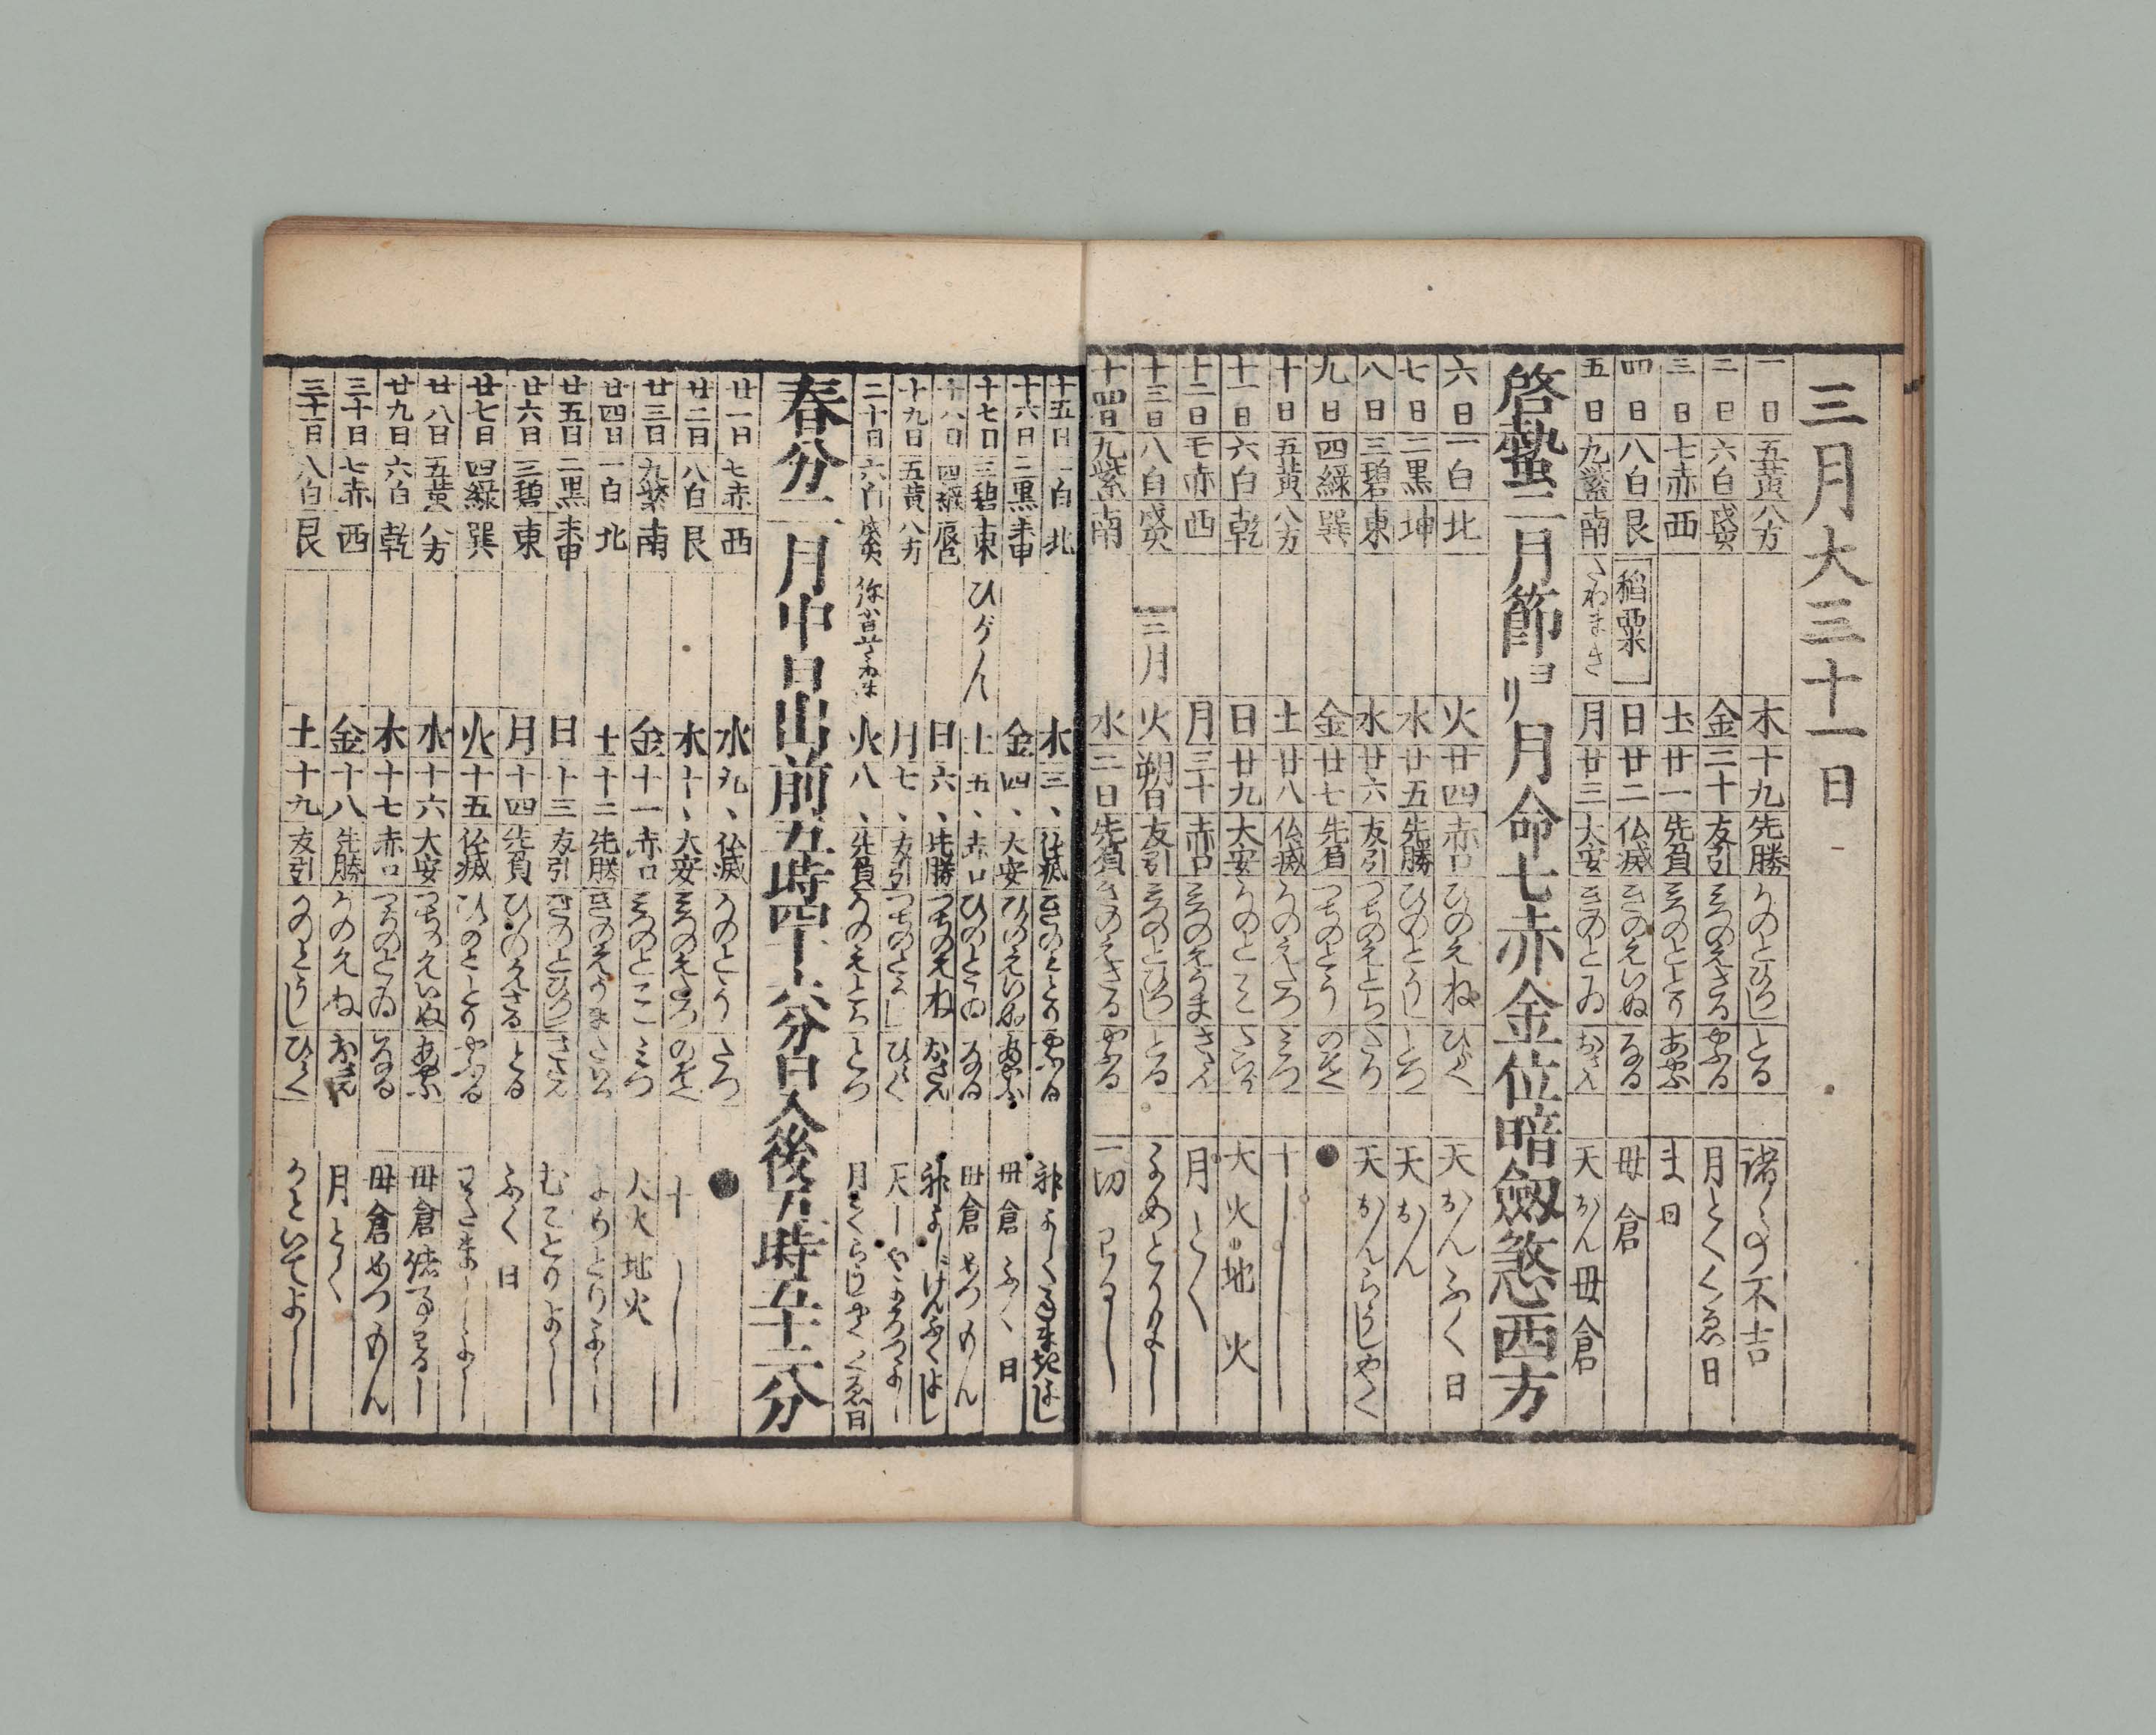 三月大三十一日
一日 五黄 八方 木 十九 先勝 かのとひつじ とる 諸事不吉
二日 六白 戌亥 金 二十 友引 みづのえさる やぶる 月とくくゑ日
三日 七赤 西 土 廿一 先負 みづのととり あやぶ ま日
四日 八白 艮 稲粟 日 廿二 仏滅 きのえいぬ なる 母倉
五日 九紫 南 たねまき 月 廿三 大安 きのとゐ おさん 天おん母倉
啓蟄二月節ヨリ月命七赤金位暗劔煞西方
六日 一白 北 火 廿四 赤口 ひのえね ひらく 天おんふく日
七日 二黒 坤 水 廿五 先勝 ひのとうし とづ 天おん
八日 三碧 東 木 廿六 友引 つちのえとら たつ 天おんらうじやく
九日 四緑 巽 金 廿七 先負 つちのとう のぞく ●
十日 五黄 八方 土 廿八 仏滅 かのえたつ みつ 十し
十一日 六白 乾 日 廿九 大安 かのとみ たいら 大火地火
十二日 七赤 西 月 三十 赤口 みづのえうま さだん 月とく
十三日 八白 戌亥 二月 火 朔日 友引 みづのとひつじ とる よめとりよし
十四日 九紫 南 水 二日 先負 きのえさる やぶる 一切わるし
十五日 一白 北 木 三、 仏滅 きのととり やぶる 神よし
十六日 二黒 未申 金 四、 大安 ひのえいぬ あやぶ 母倉ふく日
十七日 三碧 東 ひがん 土 五、 赤口 ひのとゐ なる 母倉めつもん
十八日 四緑 辰巳 日 六、 先勝 つちのえね おさん 神よしげんぶくよし
十九日 五黄 八方 月 七、 友引 つちのとうし ひらく
二十日 六白 戌亥 火 八、 先負 かのえとら とづ 月とくらうじやくくゑ日
春分二月中日出前五時四十六分日入後五時五十六分
廿一日 七赤 西 水 九、 仏滅 かのとう たつ ●
廿二日 八白 艮 木 十、 大安 みづのえたつ のぞく 十し
廿三日 九紫 南 金 十一 赤口 みづのとみ みつ 大火地火
廿四日 一白 北 土 十二 先勝 きのえうま たいら よめとりよし
廿五日 二黒 未申 日 十三 友引 きのとひつじ さだん むことりよし
廿六日 三碧 東 月 十四 先負 ひのえさる とる ふく日
廿七日 四緑 巽 火 十五 仏滅 ひのととり やぶる たねまきよし
廿八日 五黄 八方 水 十六 大安 つちのえいぬ あやぶ 母倉諸事わるし
廿九日 六白 乾 木 十七 赤口 つちのとゐ なる 母倉めつもん
三十日 七赤 西 金 十八 先勝 かのえね おさん 月とく
三十一日 八白 艮 土 十九 友引 かのとうし ひらく かどいでよし